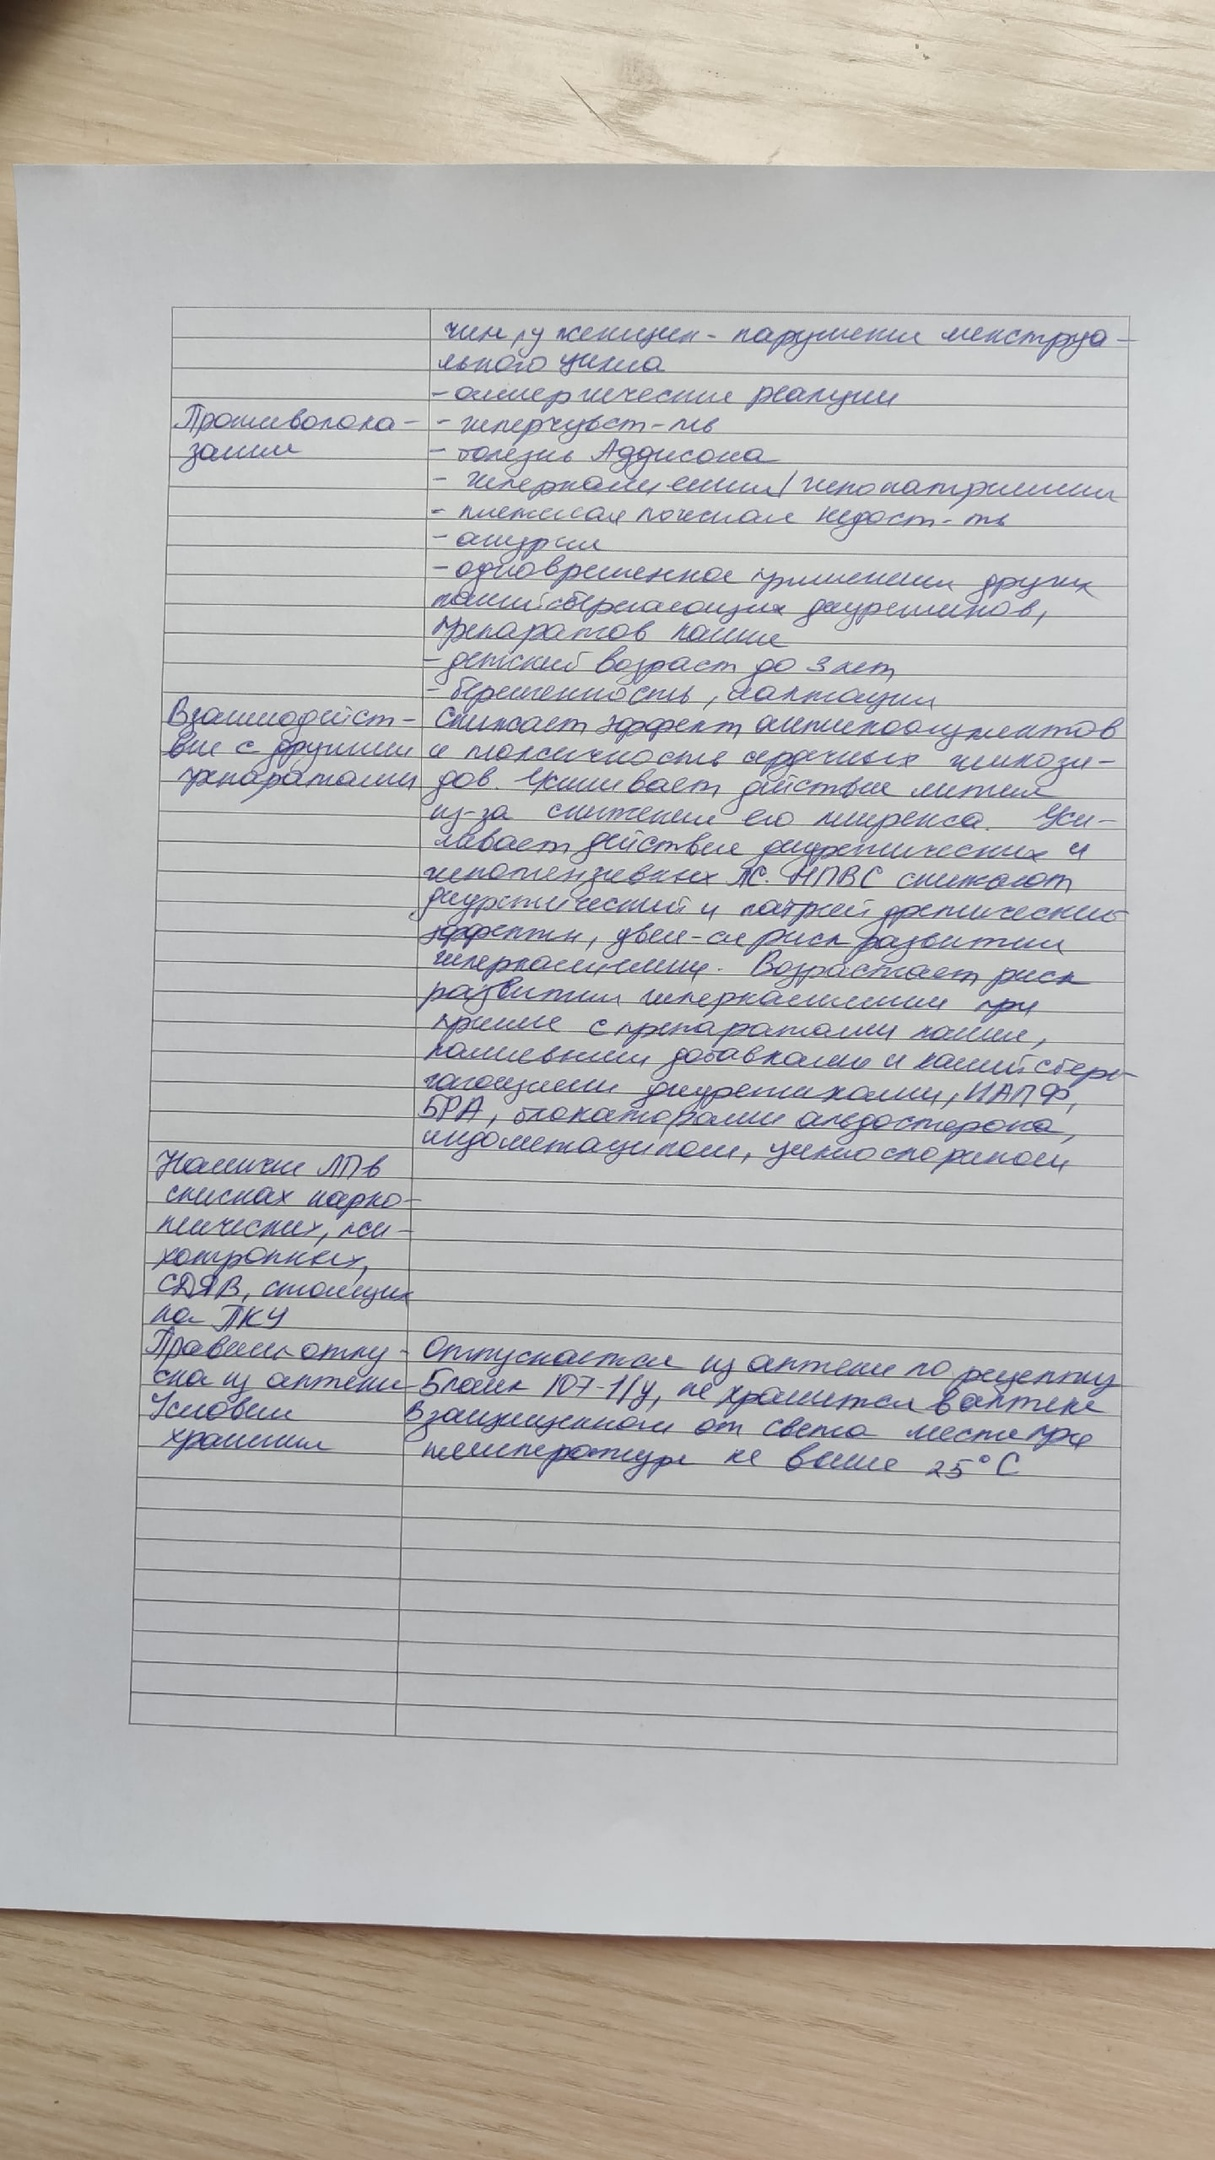 чин, у женщин - нарушения менструа-
льного цикла
- аллергические реакции
Противопока- - гиперчувст-ть
зания - болезнь Аддисона
- гиперкалиемия/гипонатриемия
- тяжелая почечная недост-ть
- анурия
- одновременное применение других
калийсберегающих диуретиков,
препаратов калия
- детский возраст до 3 лет
- беременность, лактация
Взаимодейст- Снижает эффект антикоагулянтов
вие с другими и токсичность сердечных гликози-
препаратами дов. Усиливает действие лития
из-за снижения его клиренса. Уси-
ливает действие диуретических и
гипотензивных ЛС. НПВС снижают
диуретический и натрийуретический
эффекты, увел-ся риск развития
гиперкалиемии. Возрастает риск
развития гиперкалиемии при
приеме с препаратами калия,
калиевыми добавками и калийсбере-
гающими диуретиками, ИАПФ,
БРА, блокаторами альдостерона,
индометацином, циклоспорином
Наличие ЛП в
списках нарко-
тических, пси-
хотропных,
СДЯВ, стоящих
на ПКУ
Правила отпу- Отпускается из аптеки по рецепту
ска из аптеки Бланк 107-1/у, не хранится в аптеке
Условия В защищенном от света месте при
хранения температуре не выше 25°С